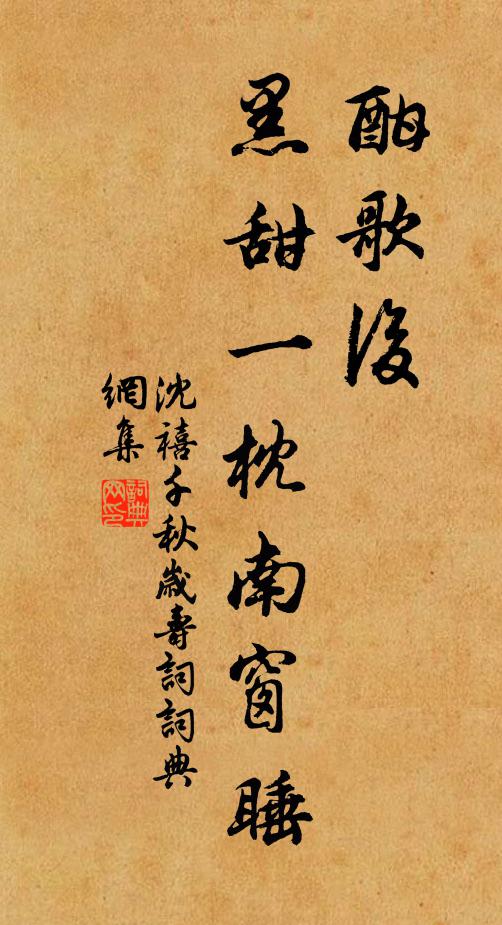 酣歌後
黑甜一枕南窗睡
沈禧千秋歲壽詞詞典
網集
詞典網印